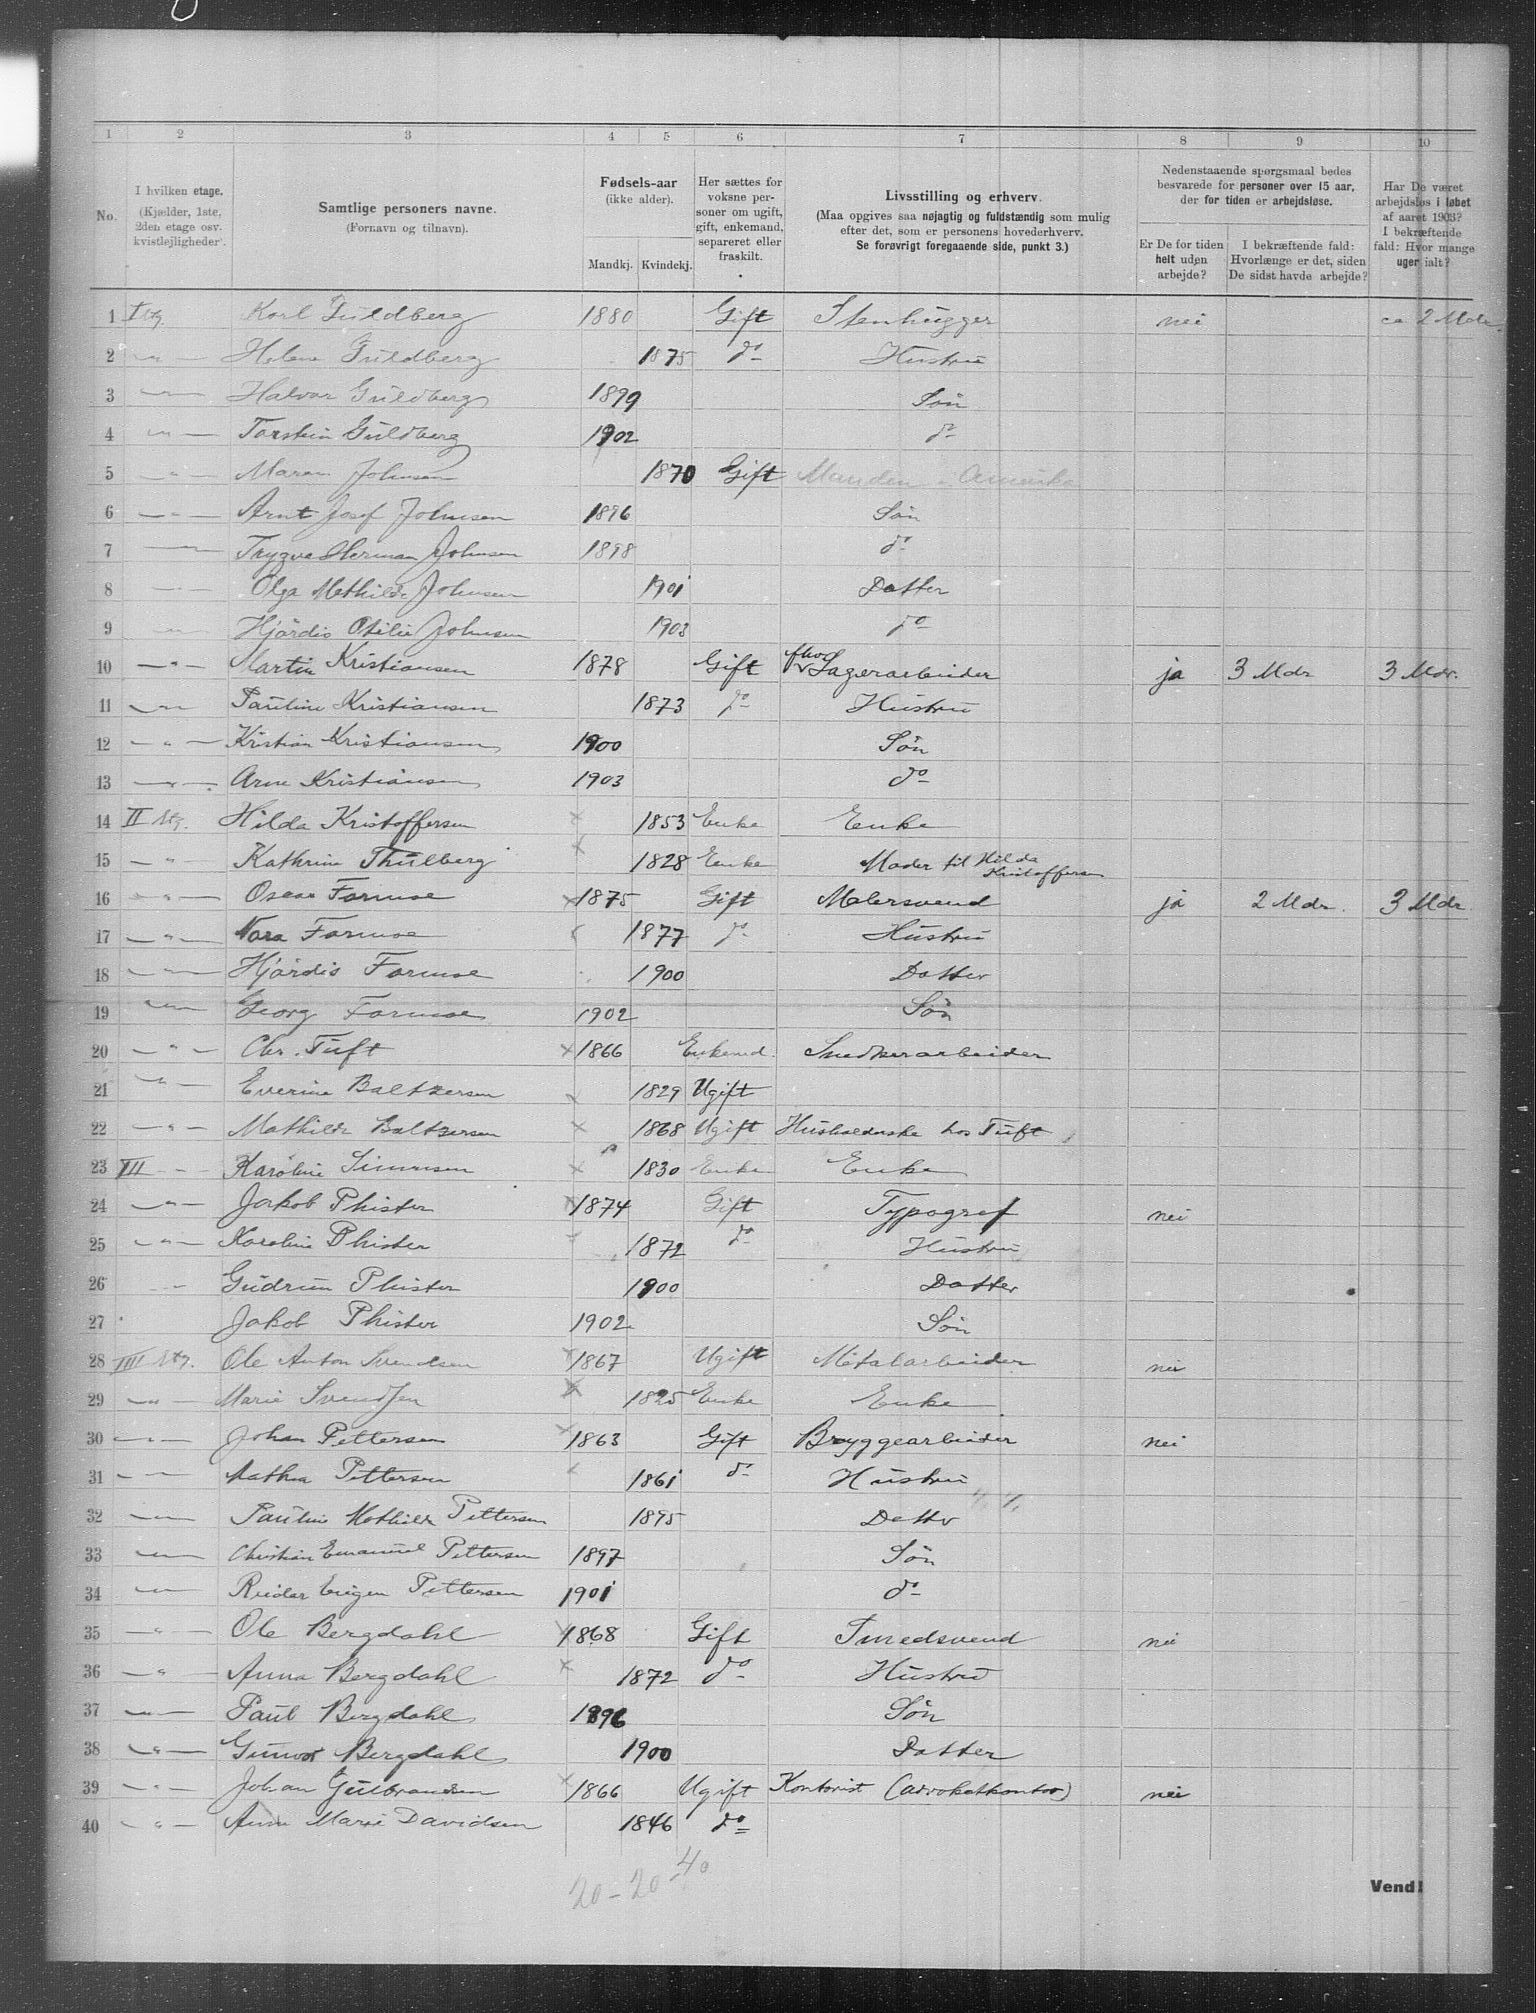 1 2 3 4 5 6 7 8 9 10
No.
I hvilken etage.
(Kjælder, 1ste,
2den etage osv.
kvistlejligheder).
Samtlige personers navne.
(Fornavn og tilnavn).
Fødsels-aar
(ikke alder).
Mandkj. Kvindekj.
Her sættes for
voksne per-
soner om ugift,
gift, enkemand,
separeret eller
fraskilt.
Livsstilling og erhverv.
(Maa opgives saa nøjagtig og fuldstændig som mulig
efter det, som er personens hovederhverv.
Se forøvrigt foregaaende side, punkt 3.)
Nedenstaaende spørgsmaal bedes
besvarede for personer over 15 aar,
der for tiden er arbejdsløse.
Er De for tiden
helt uden
arbejde?
I bekræftende fald:
Hvorlænge er det, siden
De sidst havde arbejde?
Har De været
arbejdsløs i løbet
af aaret 1903?
I bekræftende
fald: Hvor mange
uger ialt?
1 I Etg. Karl Guldberg 1880 Gift Stenhugger nei ca 2 Mdr.
2 — " — Helene Guldberg 1875 do Hustru
3 — " — Halvor Guldberg 1899 Søn
4 — " — Torstein Guldberg 1902 do
5 — " — Maren Johnsen 1870 Gift Manden i Amerika
6 — " — Arnt Josef Johnsen 1896 Søn
7 — " — Trygve Herman Johnsen 1898 do
8 — " — Olga Mathilde Johnsen 1901 Datter
9 — " — Hjørdis Otilie Johnsen 1903 do
10 — " — Martin Kristiansen 1878 Gift Lagerarbeider ja 3 Mdr 3 Mdr.
11 — " — Pauline Kristiansen 1873 do Hustru
12 — " — Kristian Kristiansen 1900 Søn
13 — " — Arne Kristiansen 1903 do
14 II Etg. Hilda Kristoffersen × 1853 Enke Enke
15 — " — Kathrine Thulberg × 1828 Enke Moder til Hilda Kristoffersen
16 — " — Oscar Formoe × 1875 Gift Malersvend ja 2 Mdr 3 Mdr
17 — " — Nora Formoe 1877 do Hustru
18 — " — Hjørdis Formoe 1900 Datter
19 — " — Georg Formoe 1902 Søn
20 — " — Chr. Tuft × 1866 Enkemd. Snedkerarbeider
21 — " — Everine Baltzersen × 1829 Ugift
22 — " — Mathilde Baltzersen × 1868 Ugift Husholderske hos Tuft
23 III — " — Karoline Simensen × 1830 Enke Enke
24 — " — Jakob Phister × 1874 Gift Typograf nei
25 — " — Karoline Phister 1872 do Hustru
26 — " — Gudrun Phister 1900 Datter
27 Jakob Phister 1902 Søn
28 IIII Etg. Ole Anton Svendsen × 1867 Ugift Metalarbeider nei
29 — " — Marie Svendsen × 1825 Enke Enke
30 — " — Johan Pettersen × 1863 Gift Bryggearbeider nei
31 — " — Mathea Pettersen 1861 do Hustru
32 — " — Pauline Mathilde Pettersen 1895 Datter
33 — " — Christian Emanuel Pettersen 1897 Søn
34 — " — Reidar Eugen Pettersen 1901 do
35 — " — Ole Bergdahl × 1868 Gift Smedsvend nei
36 — " — Anna Bergdahl × 1872 do Hustru
37 — " — Paul Bergdahl 1896 Søn
38 — " — Gunvor Bergdahl 1900 Datter
39 — " — Johan Gulbrandsen × 1866 Ugift Kontorist (advokatkontor) nei
40 — " — Anne Marie Davidsen 1846 do
20 - 20 - 40
Vend!